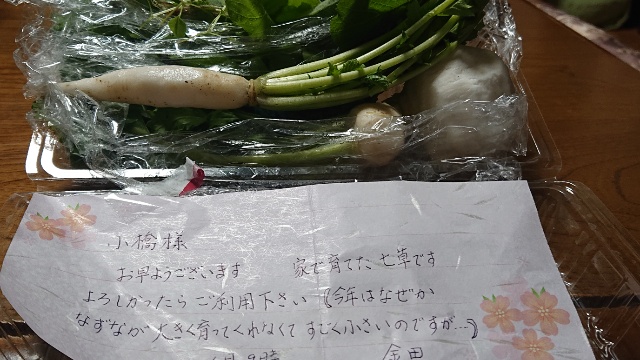 小橋様
お早ようございます　家で育てた七草です
よろしかったらご利用下さい（今年はなぜか
なずなが大きく育ってくれなくてすごく小さいのですが…）
9時　金田